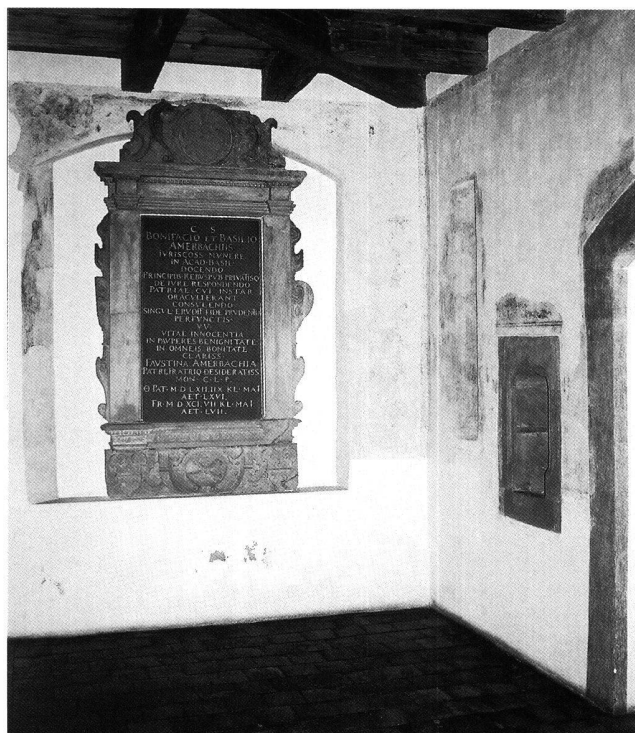 C S
BONIFACIO ET BASILIO
AMERBACHIIS
IVRISCOSS MVNERE
IN ACAD BASIL
DOCENDO
PRINCIPIB REBVSPVB PRIVATISQ
DE IVRE RESPONDENDO
PATRIAE CVI INSTAR
ORACVLI ERANT
CONSVLENDO
SINGVL ERVDIT FIDE PRVDENTIA
PERFVNCTIS
VV
VITAE INNOCENTIA
IN PAVPERES BENIGNITATE
IN OMNEIS BONITATE
CLARISS
FAVSTINA AMERBACHIA
PATRI FRATRIQ DESIDERATISS
MON · C · L · P ·
PAT · M D LXII · IIX KL · MAI
AET · LXVI ·
FR · M D XCI · VII KL · MAI
AET · LVII ·